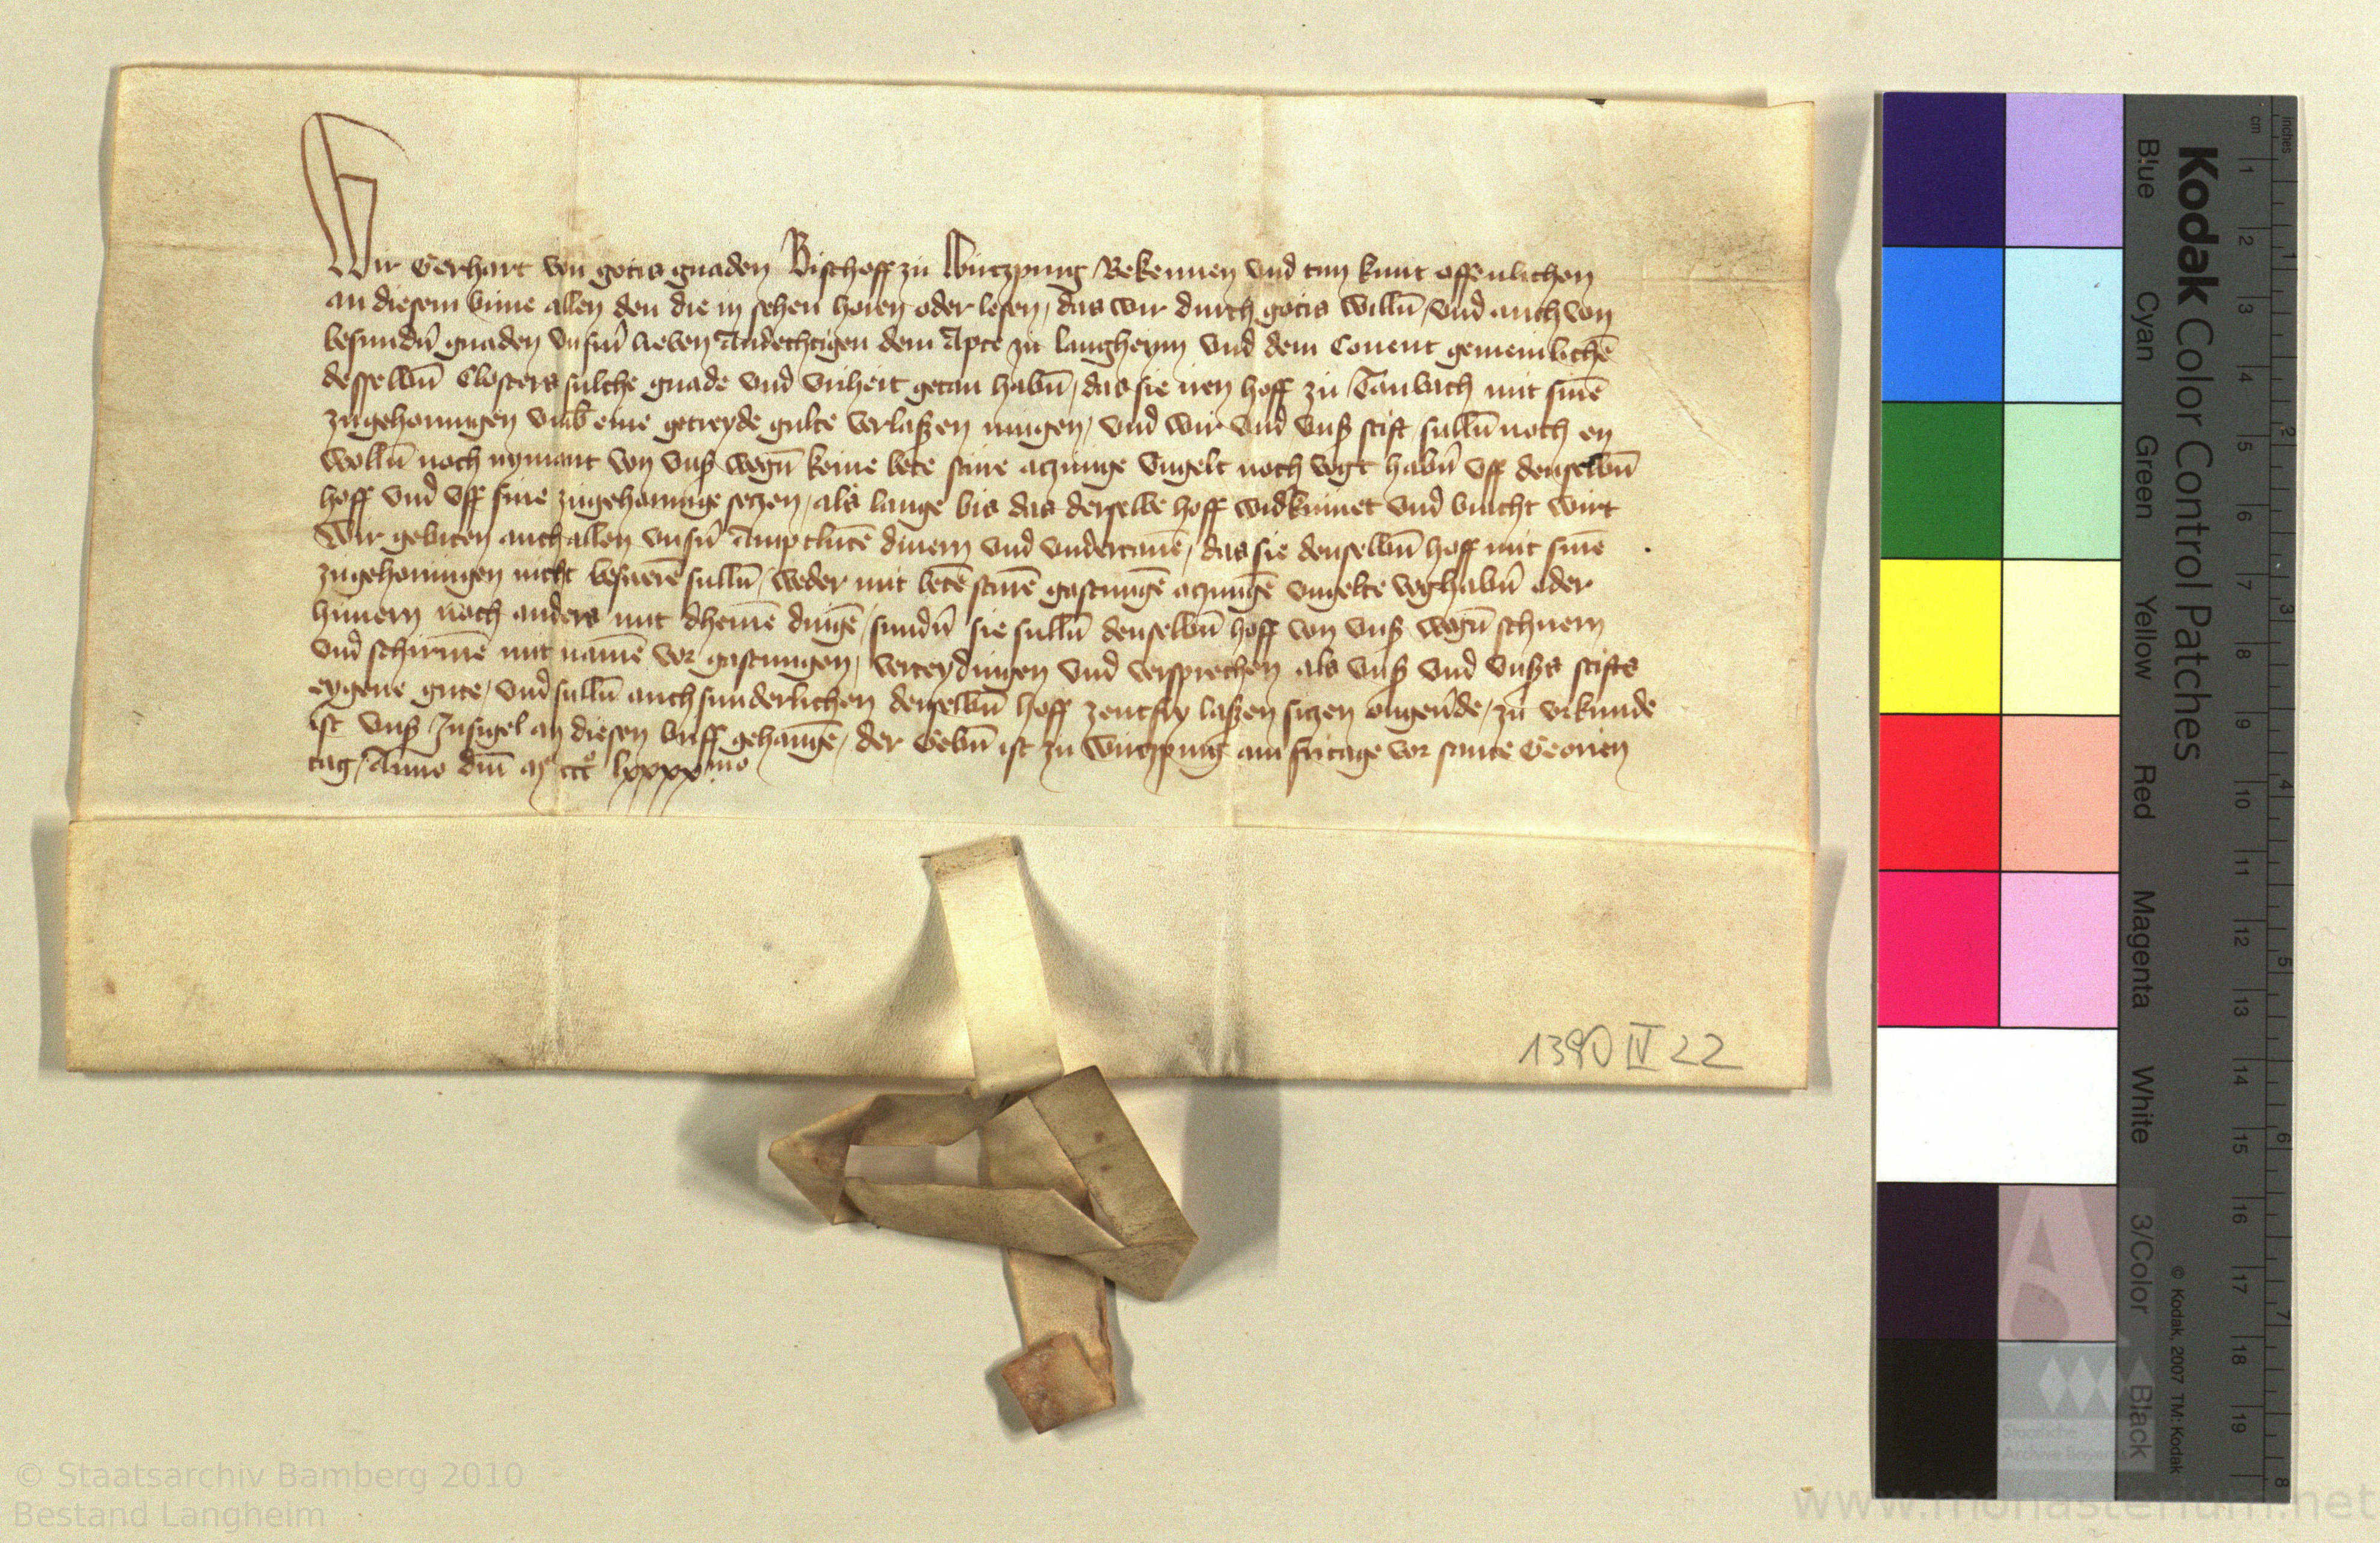 Wir Gerhart von gotis gnaden Bischoff zu Wirczpurg Bekennen vnd tun kunt offenlichen
an diesem briue allen den die in sehen horen oder lesen, das wir durch gotis willn̄, vnd auch von
besundn̄ gnaden vnsn̄ lieben Andechtigen dem Apte zu Langheym vnd dem Conuent gemeinlichē
desselbn̄ Closters sulche gnade vnd vriheit getan habn̄, das sie iren hoff zu Tambach mit sinē
zugehorungen vmb eine getreyde gulte verlaßen mugen, vnd wir vnd vnß stift sulln̄ noch en
wolln̄ noch nymant von vnß wegn̄ keine bete stüre aczunge vngelt noch vogt habn̄ vff denselbn̄
hoff vnd vff sine zugehorunge seczen, als lange bis das derselbe hoff widkumet vnd bracht wirt
Wir gebiten auch allen vnsn̄ Amptlutē dinern vnd vndertanē, das sie denselbn̄ hoff mit sinē
zugehorungen nicht beswerē sulln̄, weder mit betē sturē gastungē aczungē vngelte voghabn̄ oder
hunern noch anders mit dheinē dingē, sundn̄ sie sulln̄ denselbn̄ hoff von vnß wegn̄ schuern
vnd schirmē mit namē vor gastungen, verteydingen vnd versprechen als vnß vnd vnßs stifts
eygene gute, vnd sulln̄ auch sunderlichen denselbn̄ hoff zentfry laßen siczen ongeūde, zu vrkunde
ist vnß Insigel an diesen briff gehangē, der Gebn̄ ist zu Wirczpurg am fritage vor sante Georien
tag, Anno dn̄i mͦ cccͦ lxxxxmo
1390 IV 22
Kodak Color Control Patches
Blue Cyan Green Yellow Red Magenta White 3/Color Black
© Kodak, 2007 TM: Kodak
cm 1 2 3 4 5 6 7 8 9 10 11 12 13 14 15 16 17 18 19
inches 1 2 3 4 5 6 7 8
© Staatsarchiv Bamberg 2010
Bestand Langheim
www.monasterium.net
Staatliche
Archive Bayerns